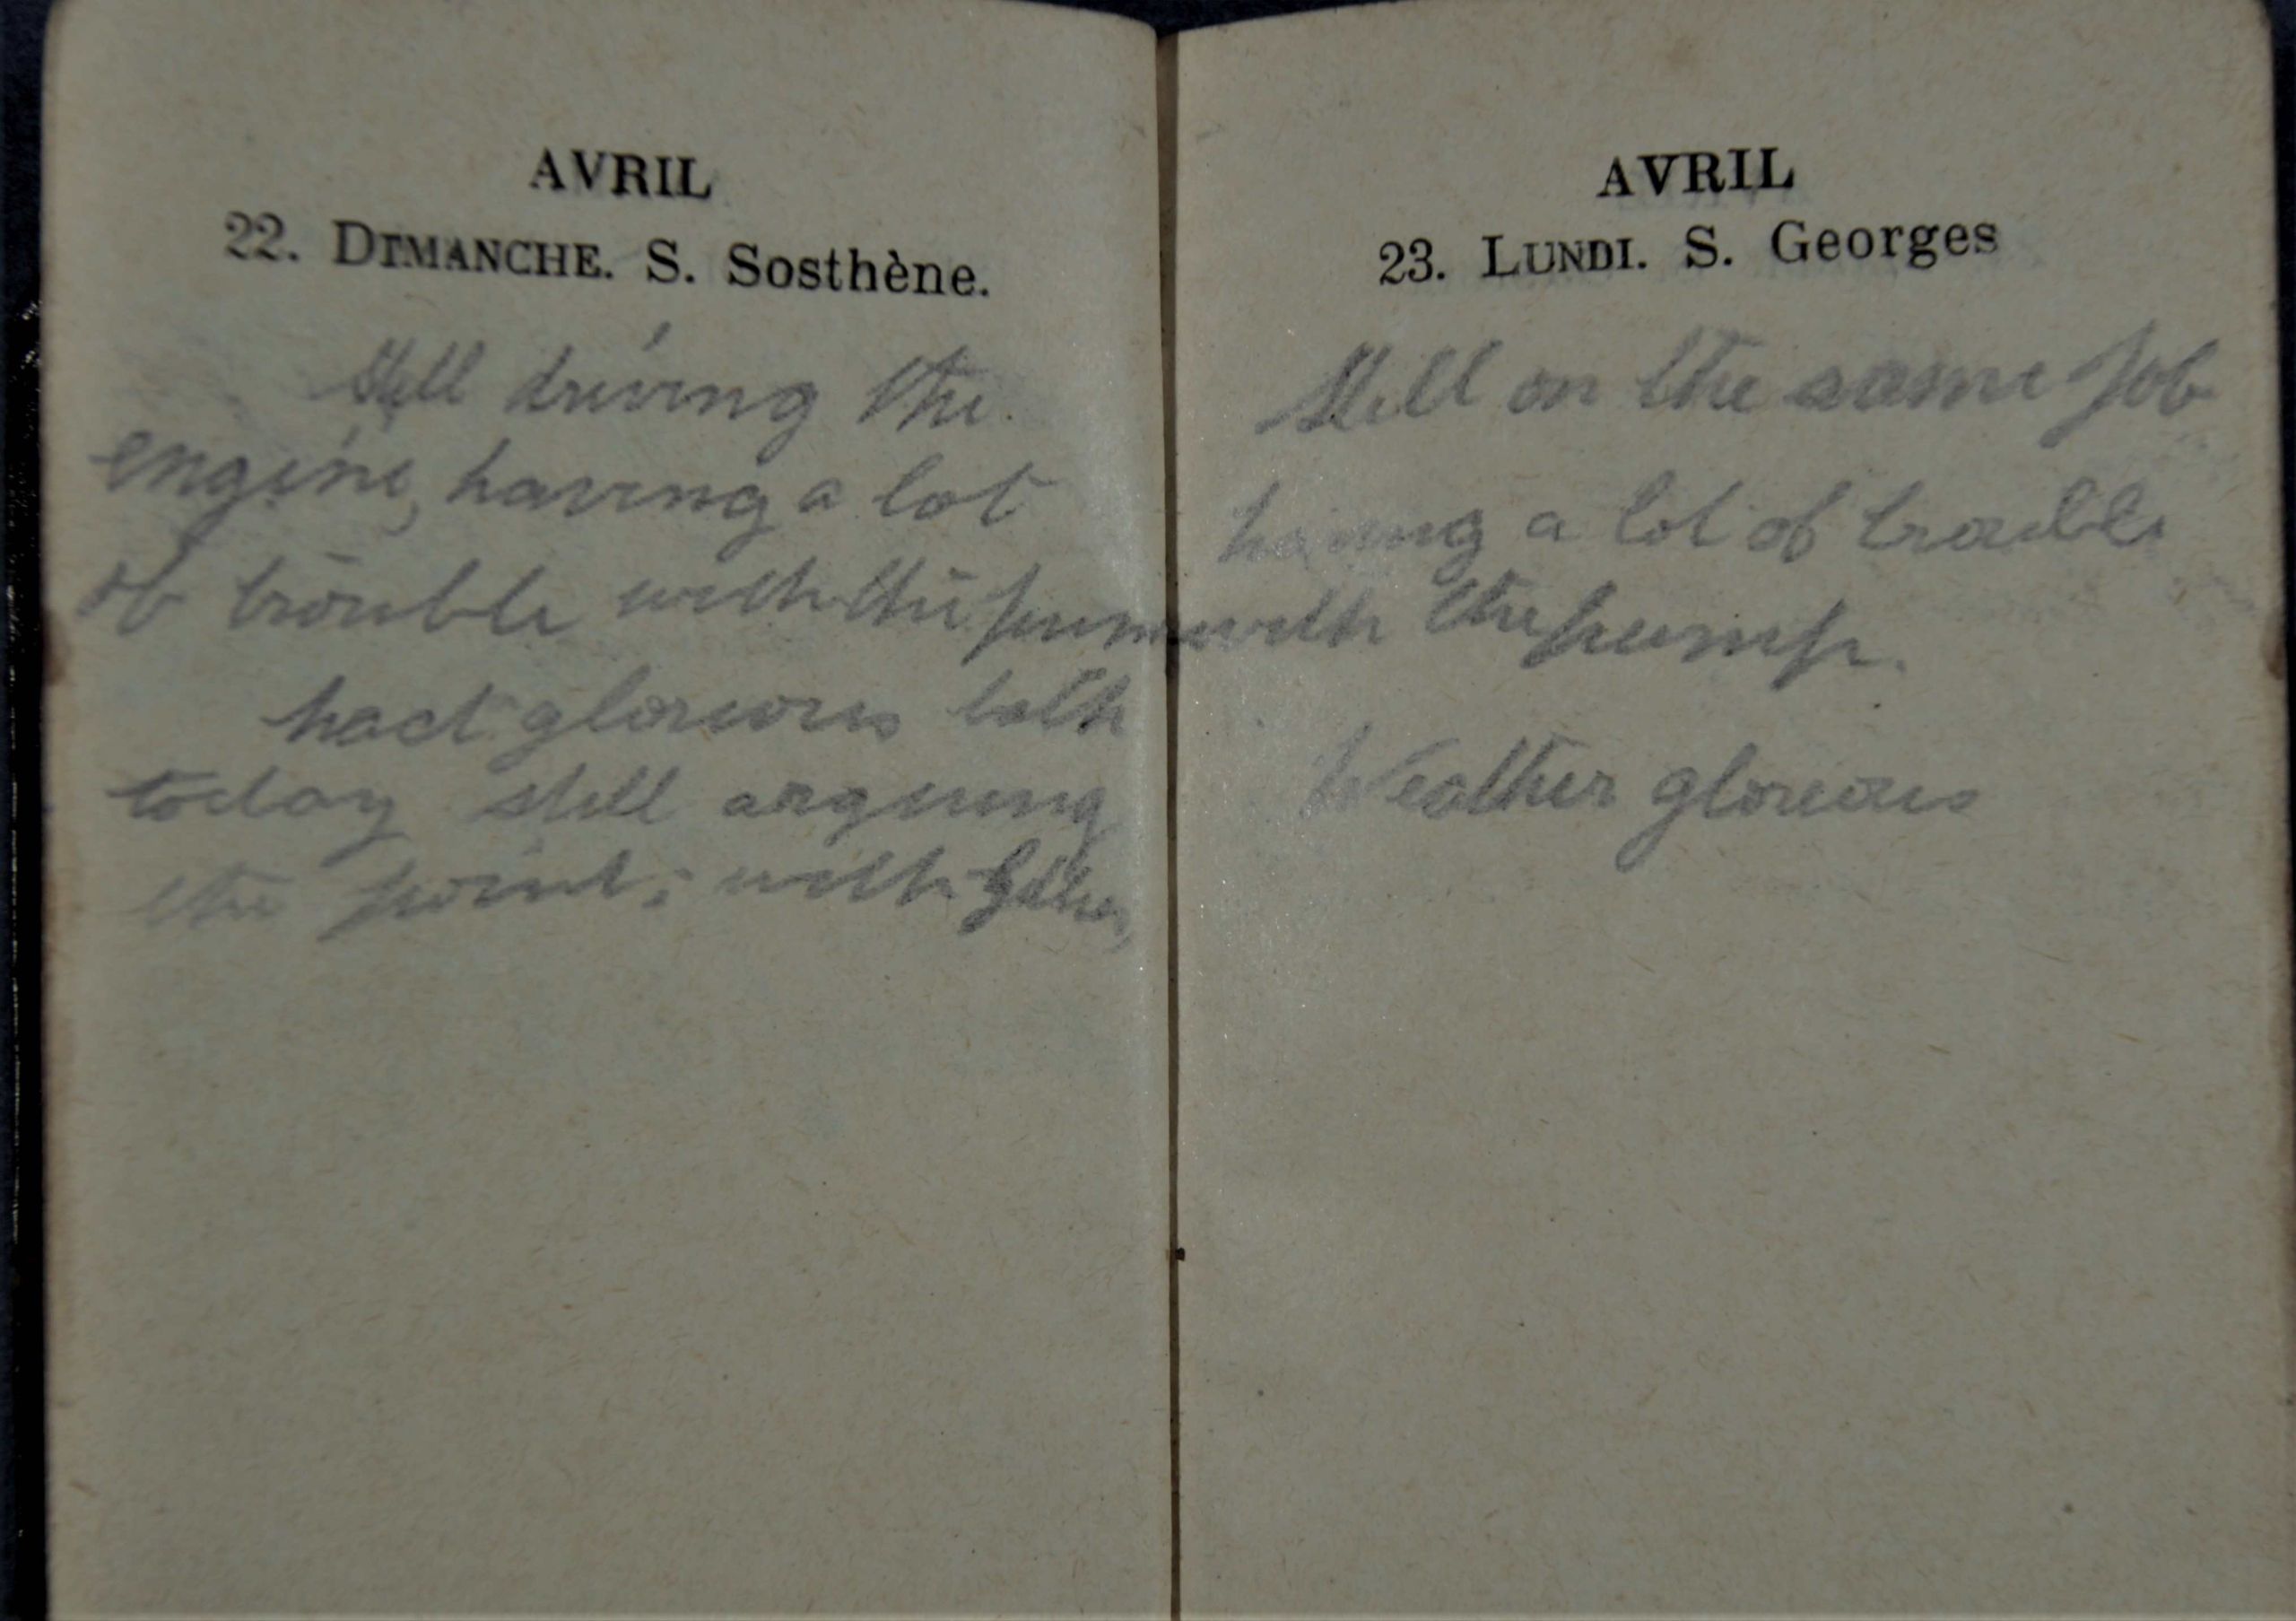 AVRIL
22. DIMANCHE. S. Sosthène.
Still driving the
engine, having a lot
of trouble with the pump
had glorious bath
today still arguing
the point; with
AVRIL
23. LUNDI. S. Georges
Still on the same job
having a lot of trouble
with the pump.
Weather glorious